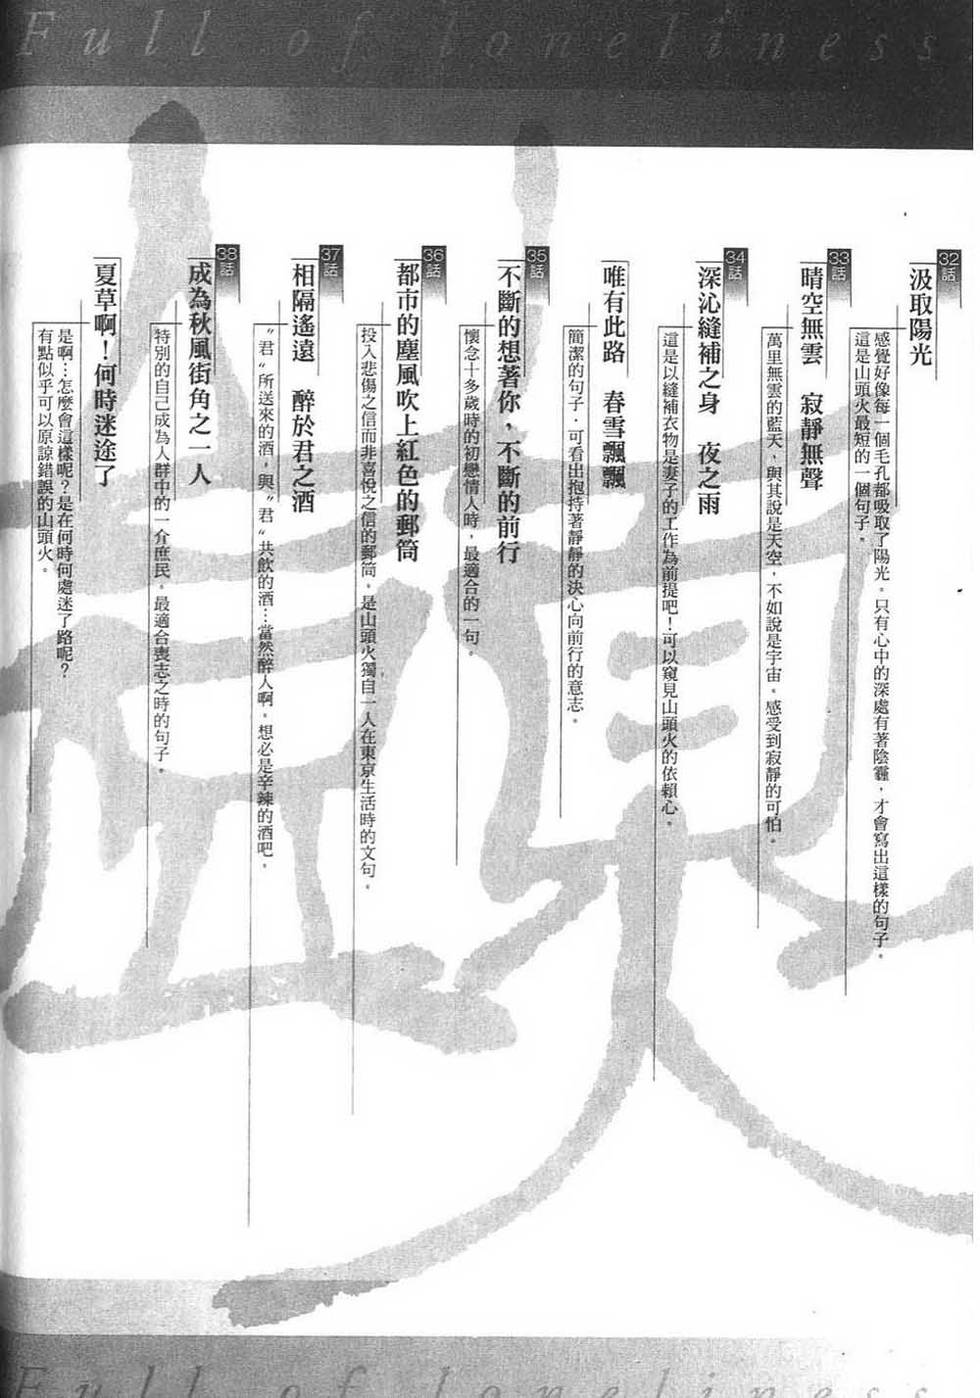 Full of loneliness
32話
汲取陽光
感覺好像每一個毛孔都吸取了陽光。只有心中的深處有著陰霾，才會寫出這樣的句子。
這是山頭火最短的一個句子。
33話
晴空無雲　寂靜無聲
萬里無雲的藍天，與其說是天空，不如說是宇宙。感受到寂靜的可怕。
34話
深沁縫補之身　夜之雨
這是以縫補衣物是妻子的工作為前提吧！可以窺見山頭火的依賴心。
唯有此路　春雪飄飄
簡潔的句子，可看出抱持著靜靜的決心向前行的意志。
35話
不斷的想著你，不斷的前行
懷念十多歲時的初戀情人時，最適合的一句。
36話
都市的塵風吹上紅色的郵筒
投入悲傷之信而非喜悅之信的郵筒。是山頭火獨自一人在東京生活時的文句。
37話
相隔遙遠　醉於君之酒
〝君〞所送來的酒，與〝君〞共飲的酒…當然醉人啊。想必是辛辣的酒吧。
38話
成為秋風街角之一人
特別的自己成為人群中的一介庶民。最適合喪志之時的句子。
夏草啊！何時迷途了
是啊…怎麼會這樣呢？是在何時何處迷了路呢？
有點似乎可以原諒錯誤的山頭火。
Full of loneliness